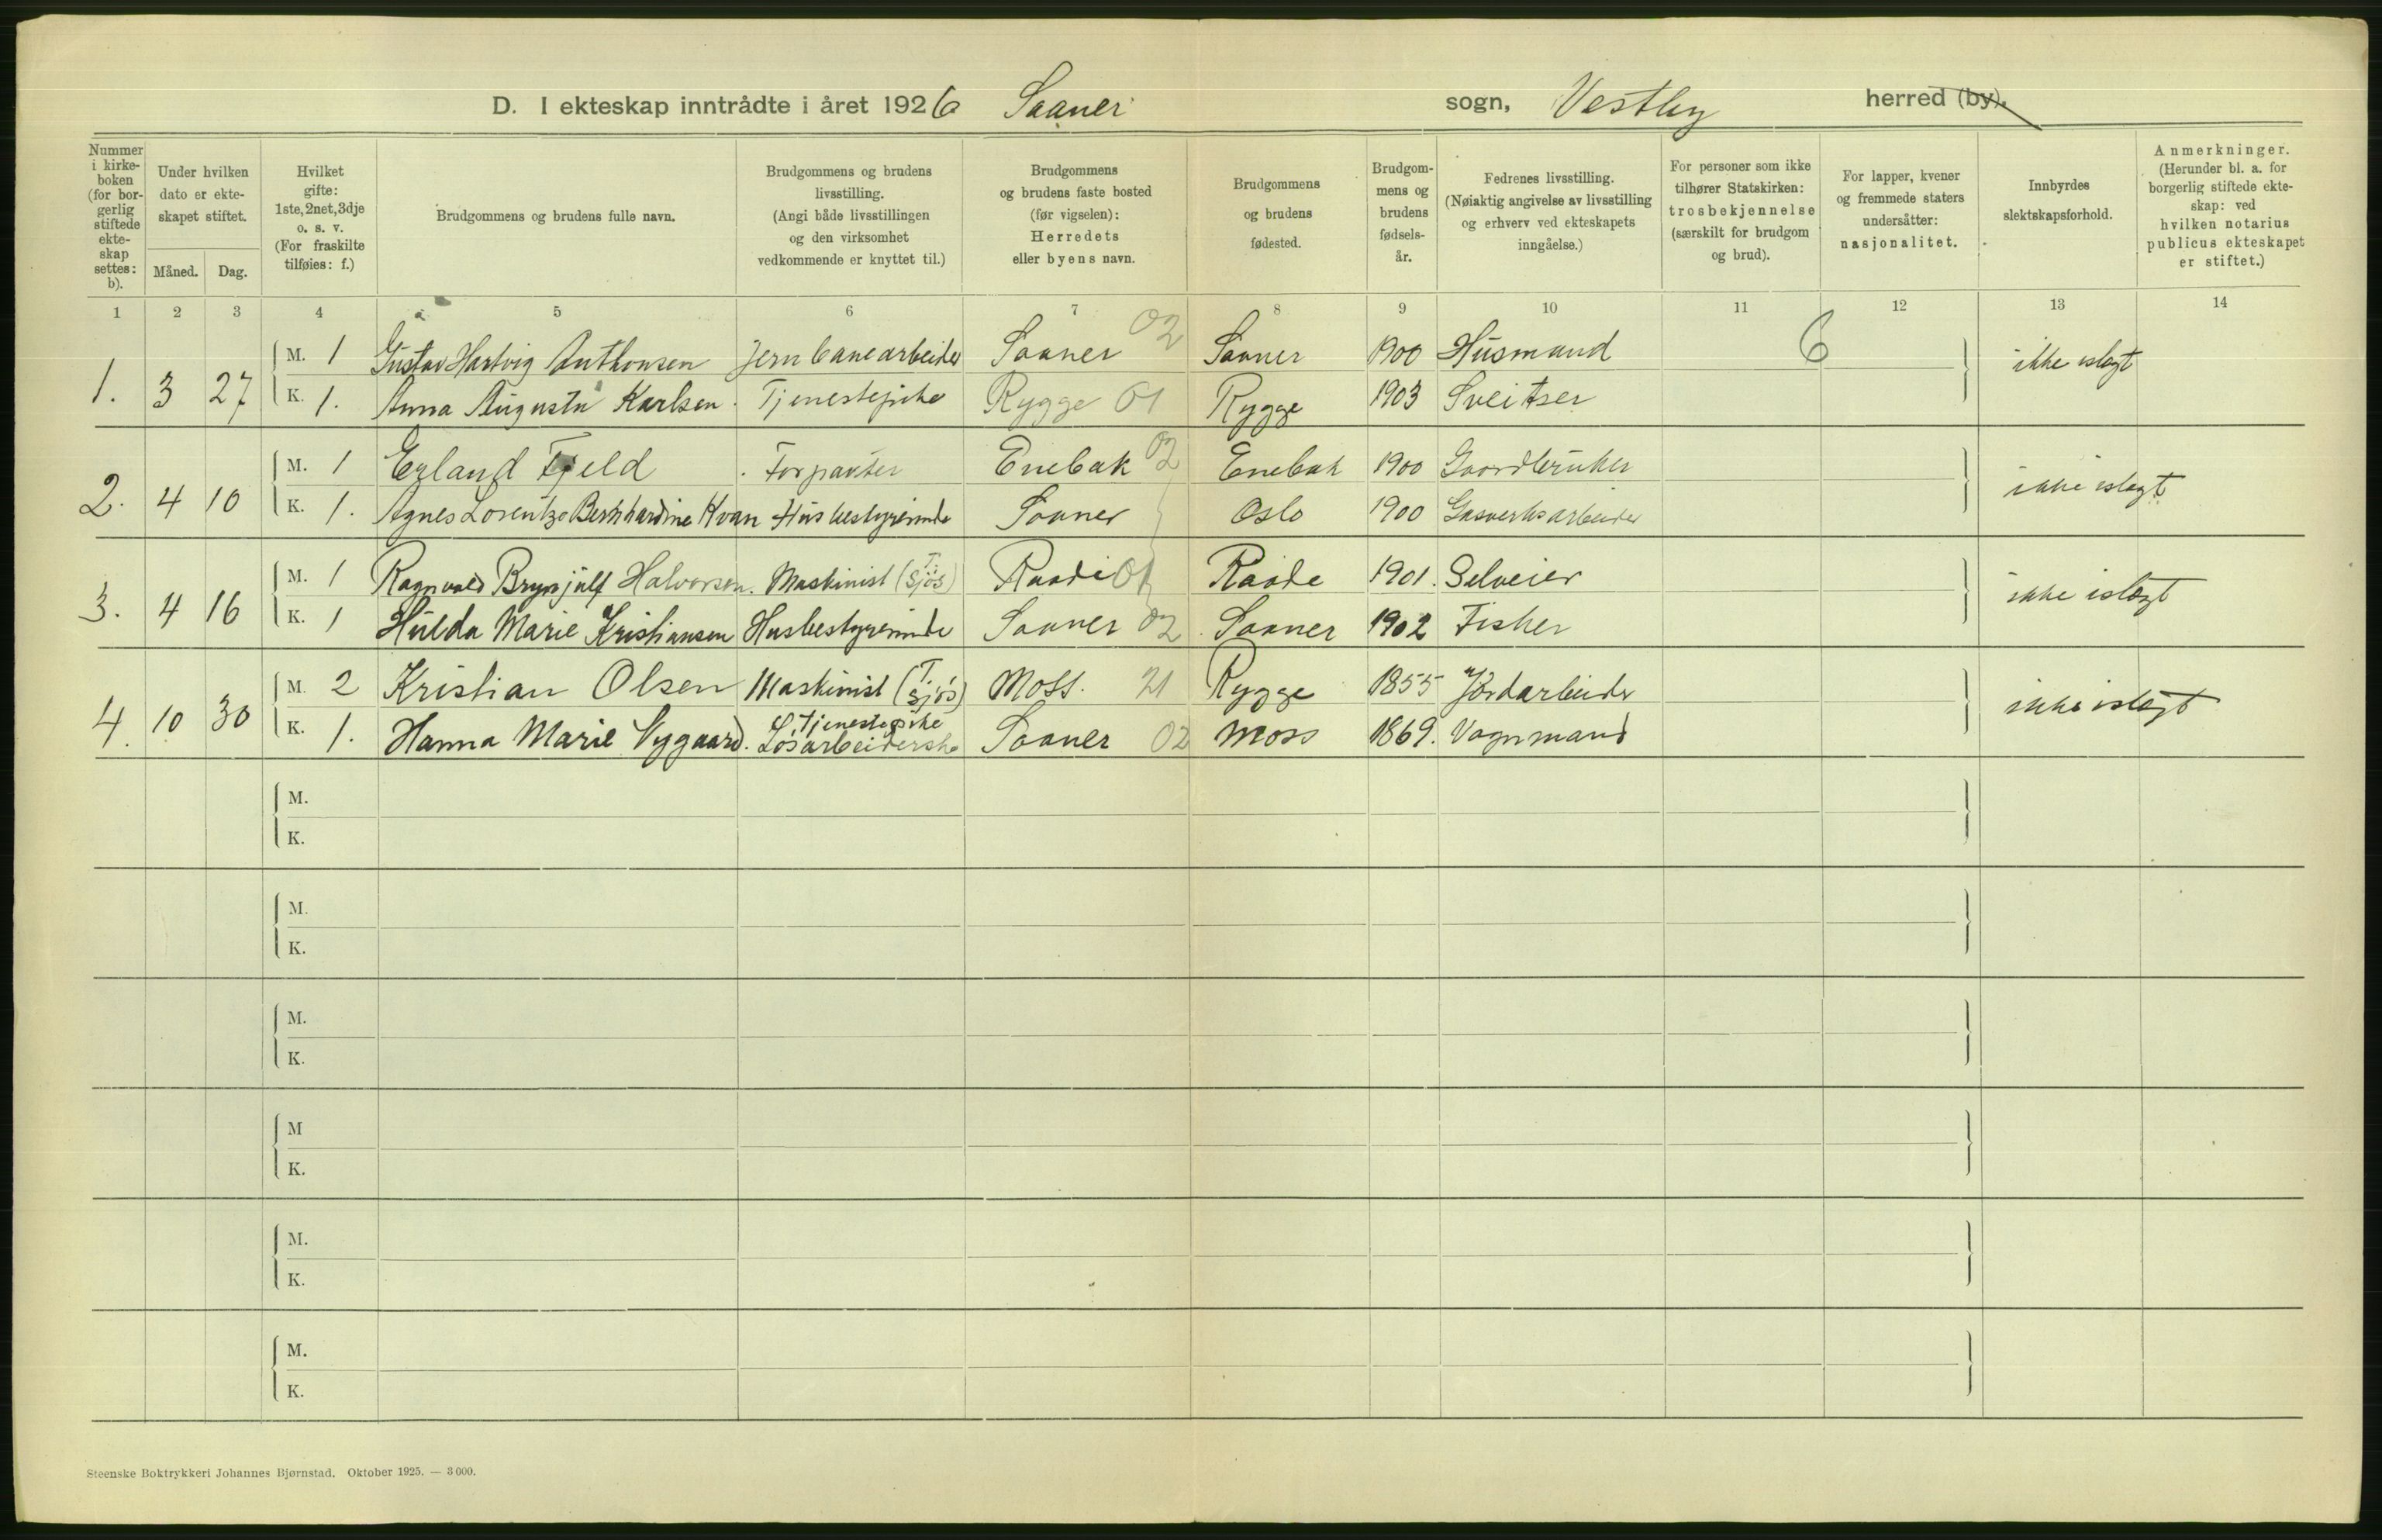 D. I ekteskap inntrådte i året 1926 Saaner sogn, Vestby herred (by).
Nummer i kirkeboken (for borgerlig stiftede ekteskap settes: b).
Under hvilken dato er ekteskapet stiftet.
Måned. Dag.
Hvilket gifte: 1ste, 2net, 3dje o. s. v. (For fraskilte tilføies: f.)
Brudgommens og brudens fulle navn.
Brudgommens og brudens livsstilling. (Angi både livsstillingen og den virksomhet vedkommende er knyttet til.)
Brudgommens og brudens faste bosted (før vigselen): Herredets eller byens navn.
Brudgommens og brudens fødested.
Brudgommens og brudens fødselsår.
Fedrenes livsstilling. (Nøiaktig angivelse av livsstilling og erhverv ved ekteskapets inngåelse.)
For personer som ikke tilhører Statskirken: trosbekjennelse (særskilt for brudgom og brud).
For lapper, kvener og fremmede staters undersåtter: nasjonalitet.
Innbyrdes slektskapsforhold.
Anmerkninger. (Herunder bl. a. for borgerlig stiftede ekteskap: ved hvilken notarius publicus ekteskapet er stiftet.)
1 2 3 4 5 6 7 8 9 10 11 12 13 14
1. 3 27 M. 1 Gustav Hartvig Anthonsen Jernbanearbeider Saaner 02 Saaner 1900 Husmand 6 ikke islegt
K. 1. Anna Augusta Karlsen. Tjenestepike Rygge 01 Rygge 1903 Sveitser
2. 4 10 M. 1 Erland Fjeld Forpakter Enebak 02 Enebak 1900 Gaardbruker ikke islegt
K. 1. Agnes Lorentze Bernhardine Kvan Husbestyrerinde Saaner Oslo 1900 Gasverksarbeider
3. 4 16 M. 1 Ragnvald Brynjulf Halvorsen. Maskinist (Tilsjøs) Raade 01 Raade 1901. Selveier ikke islegt
K. 1 Hulda Marie Kristiansen Husbestyrerinde Saaner 02 Saaner 1902 Fisker
4. 10 30 M. 2 Kristian Olsen Maskinist (T. sjøs) Moss. 21 Rygge 1855 Jordarbeider ikke islegt
K. 1. Hanna Marie Vygaard. Tjenestepike Løsarbeiderske Saaner 02 Moss 1869. Vognmand
M.
K.
M.
K.
M.
K.
M
K.
M.
K.
M.
K.
Steenske Boktrykkeri Johannes Bjørnstad. Oktober 1925. — 3 000.